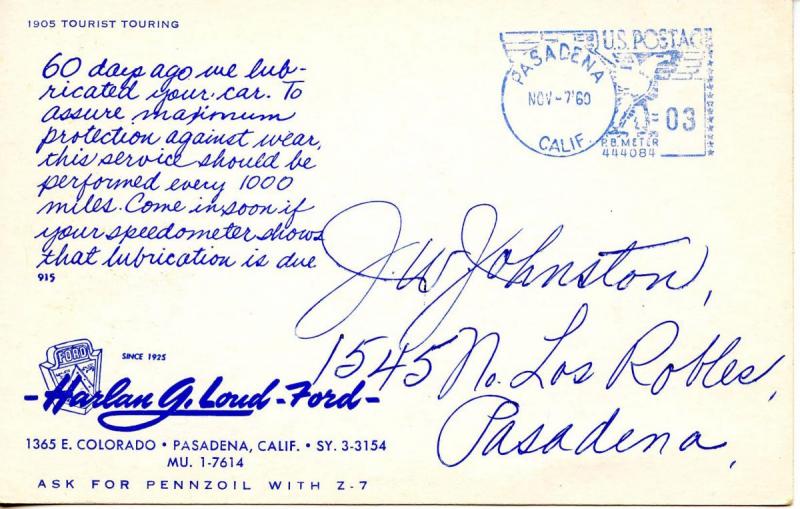 1905 TOURIST TOURING
60 days ago we lub-
ricated your car. To
assure maximum
protection against wear,
this service should be
performed every 1000
miles. Come in soon if
your speedometer shows
that lubrication is due
915
U.S. POSTAGE
PASADENA
NOV-7'60
CALIF.
03
P.B. METER
444084
J. W. Johnston,
1545 N. Los Robles,
Pasadena,
FORD
SINCE 1925
-Harlan G. Loud-Ford-
1365 E. COLORADO • PASADENA, CALIF. • SY. 3-3154
MU. 1-7614
ASK FOR PENNZOIL WITH Z-7